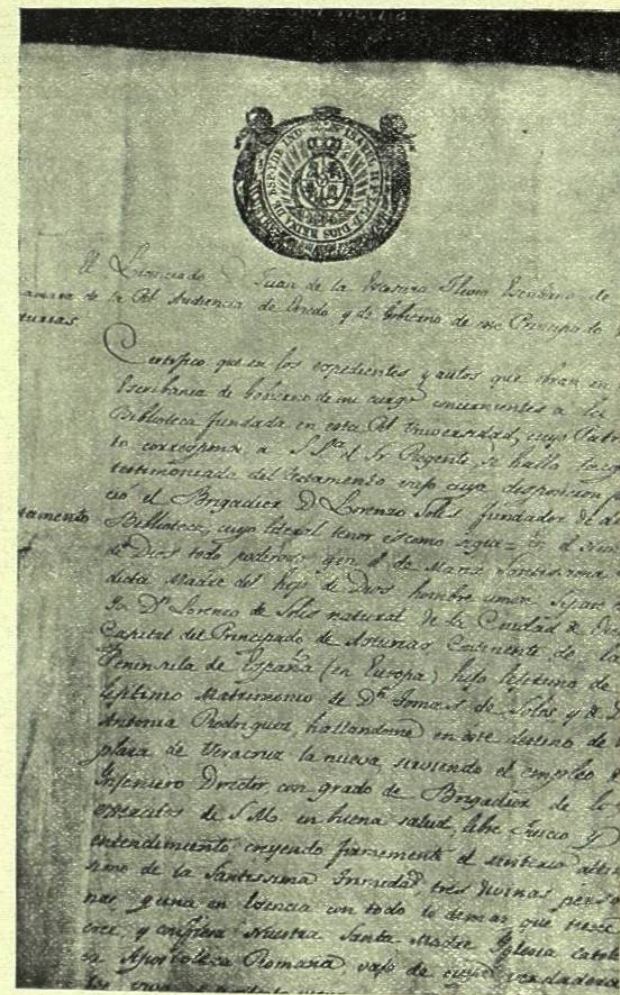 ISABEL II P. L. G. D. DIOS REINA DE ESP. Y DE IND.
El Licenciado D. Juan de la Escosura Escribano de
Camara de la Rl. Audiencia de Oviedo y de Gobierno de este Principado
turias
Certifico que en los expedientes y autos que obran en
Escribania de Gobierno de mi cargo concernientes a la
Biblioteca fundada en esta Rl. Universidad, cuyo Patr
to corresponde a S Sa. el Sr Regente, se halla
testimoniado del testamento vajo cuya disposicion
cio el Brigadier D Lorenzo Solis fundador de
tamento Biblioteca, cuyo literal tenor es como sigue = En el
de Dios todo poderoso, y en el de Maria Santissima
dicta Madre del hijo de Dios hombre
Dn. Lorenzo de Solis natural de la Ciudad de
Capital del Principado de Asturias Continente de la
Peninsula de España (en Europa) hijo lexitimo de
lexitimo Matrimonio de Dn. Tomas de Solis y de D
Antonia Rodriguez, hallandome en este destino de
plaza de Veracruz la nueva, sirviendo el empleo
Injeniero Director, con grado de Brigadier de lo
exercitos de S.M. en buena salud, libre Juicio y
entendimiento creyendo firmemente el misterio altis
simo de la Santissima Trinidad, tres divinas perso
nas, y una en Esencia con todo lo demas que
cree, y confiesa Nuestra Santa Madre Yglesia catol
ca Apostolica Romana vajo de cuya verdadera